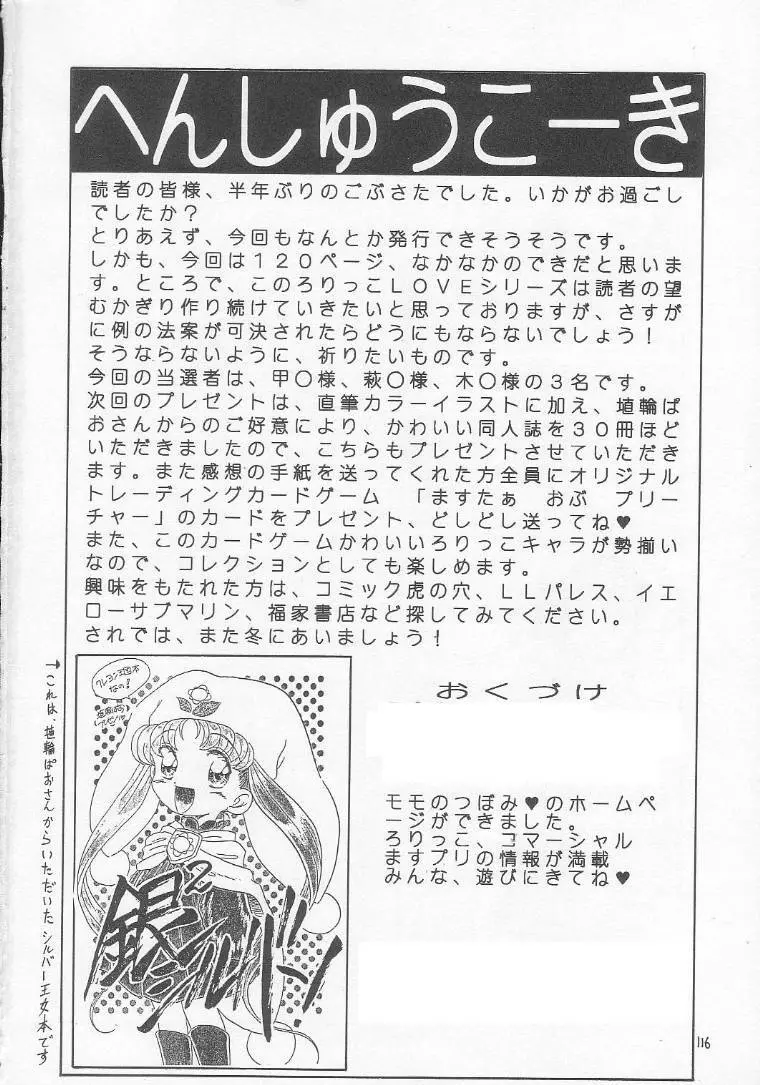 へんしゅうこーき
読者の皆様、半年ぶりのごぶさたでした。いかがお過ごし
でしたか？
とりあえず、今回もなんとか発行できそうそうです。
しかも、今回は１２０ページ、なかなかのできだと思いま
す。ところで、このろりっこＬＯＶＥシリーズは読者の望
むかぎり作り続けていきたいと思っておりますが、さすが
に例の法案が可決されたらどうにもならないでしょう！
そうならないように、祈りたいものです。
今回の当選者は、甲〇様、萩〇様、木〇様の３名です。
次回のプレゼントは、直筆カラーイラストに加え、埴輪ぱ
おさんからのご好意により、かわいい同人誌を３０冊ほど
いただきましたので、こちらもプレゼントさせていただき
ます。また感想の手紙を送ってくれた方全員にオリジナル
トレーディングカードゲーム　「ますたぁ　おぶ　プリー
チャー」のカードをプレゼント、どしどし送ってね♥
また、このカードゲームかわいいろりっこキャラが勢揃い
なので、コレクションとしても楽しめます。
興味をもたれた方は、コミック虎の穴、ＬＬパレス、イエ
ローサブマリン、福家書店など探してみてください。
されでは、また冬にあいましょう！
→これは、埴輪ぱおさんからいただいたシルバー王女本です
クレヨン王国本
なの！
銀2
シルバー
おくづけ
モモのつぼみ♥のホームペ
ージができました。
ろりっこ、コマーシャル
ますプリの情報が満載
みんな、遊びにきてね♥
116